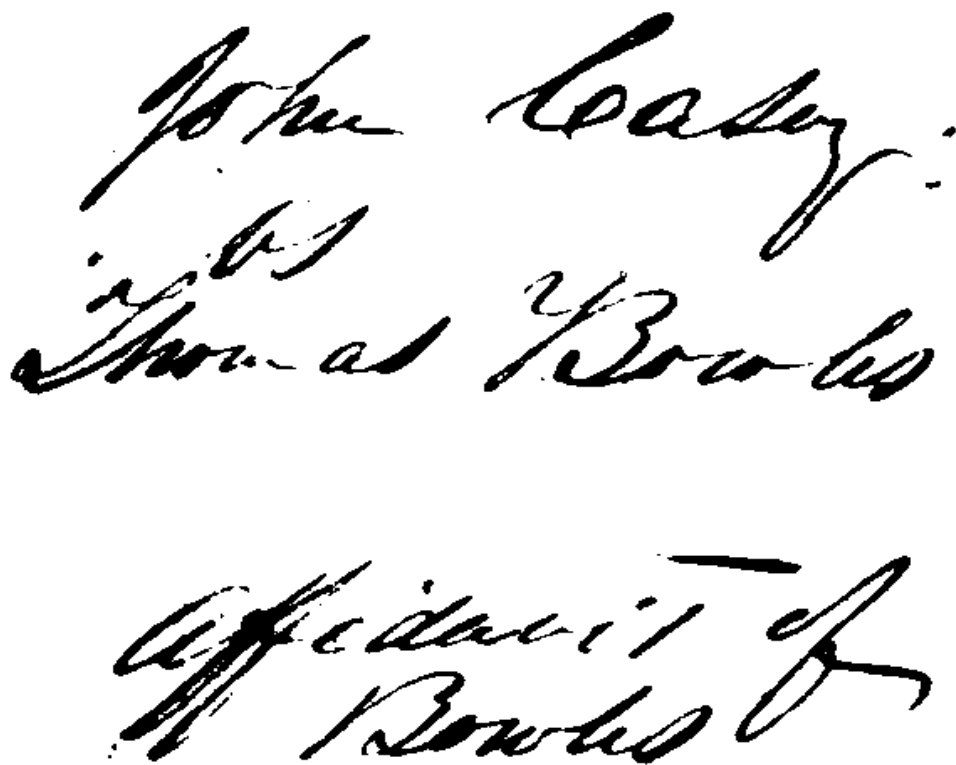 John Casey.
vs
Thomas Bowles
Affidavit of
Bowles